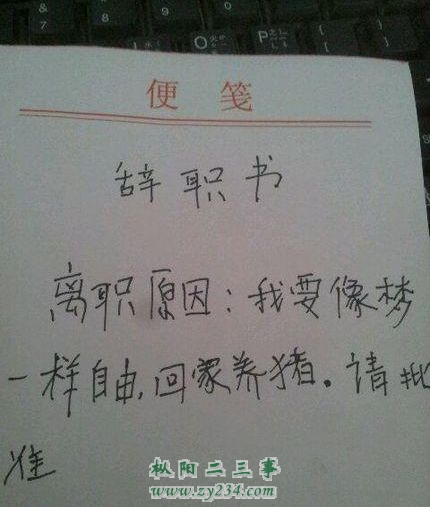 8
9
7
8
9
O
P
[
{
便 笺
辞职书
离职原因：我要像梦
一样自由，回家养猪。请批
准
枞阳二三事
www.zy234.com